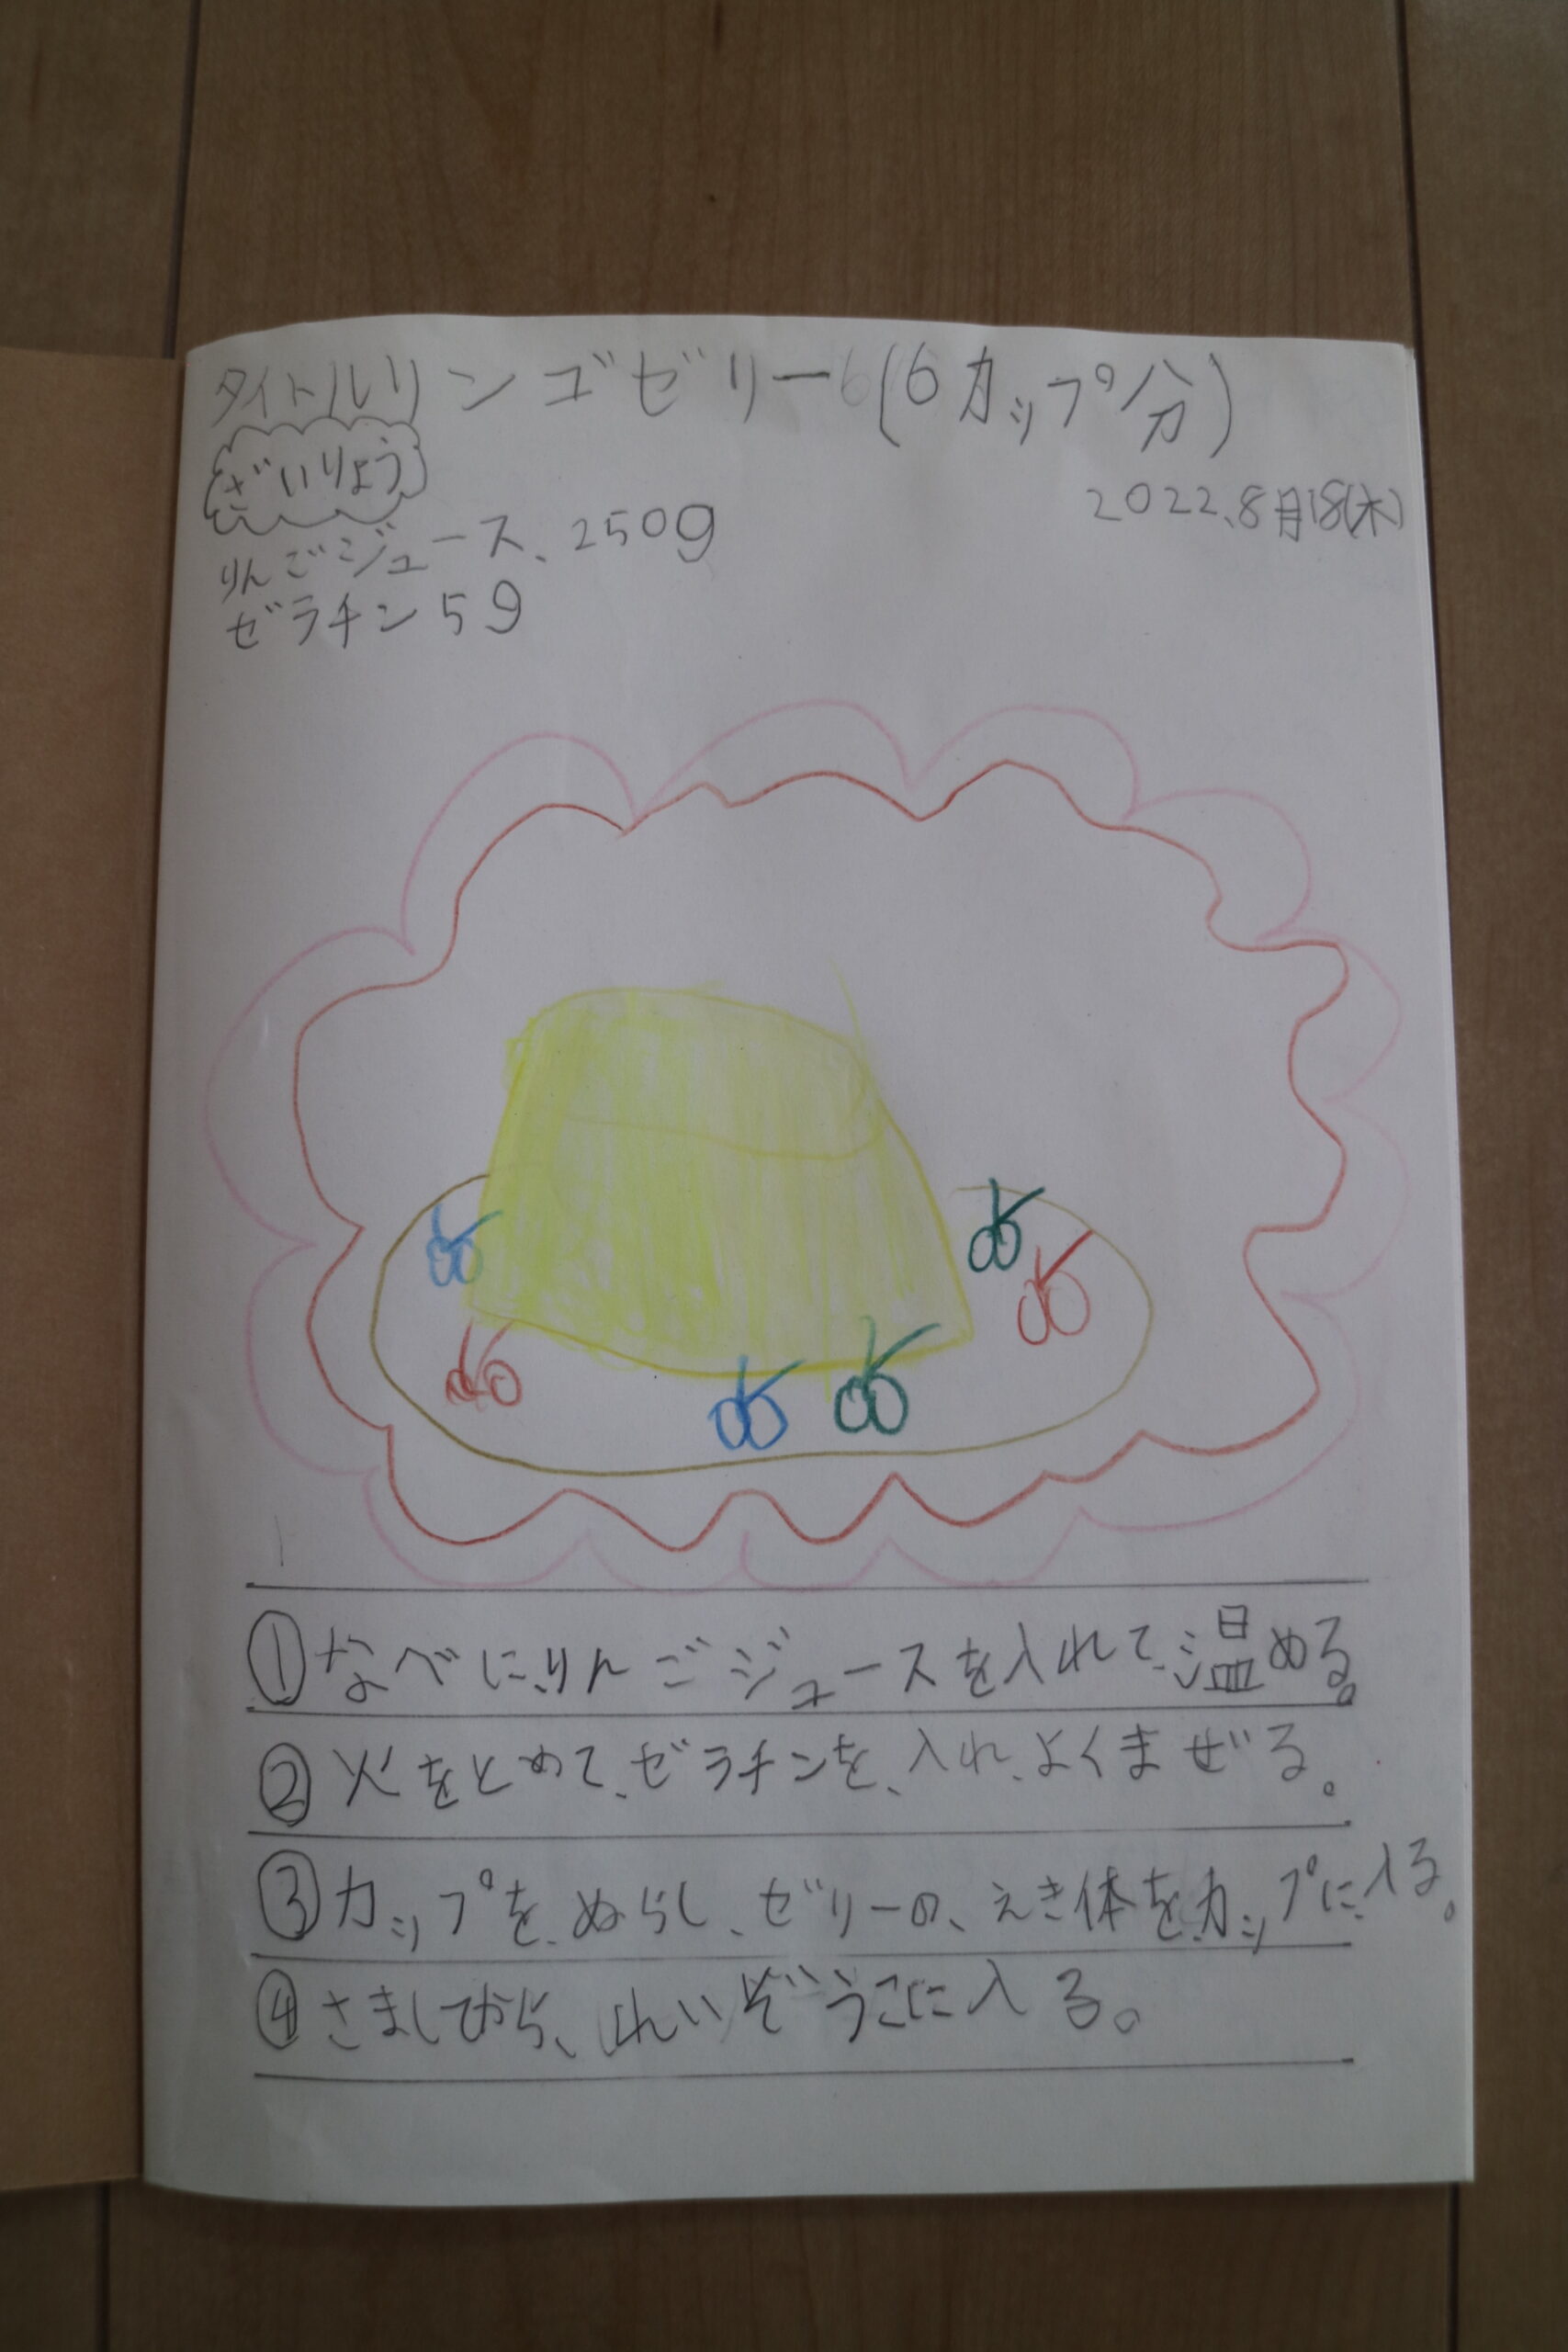 タイトルリンゴゼリー(6カップ分)
ざいりょう
2022.8月18(木)
りんごジュース、250g
ゼラチン5g
①なべに、りんごジュースを入れて、温める。
②火をとめて、ゼラチンを、入れ、よくまぜる。
③カップを、ぬらし、ゼリーの、えき体を、カップに、入る。
④さましてから、れいぞうこに入る。